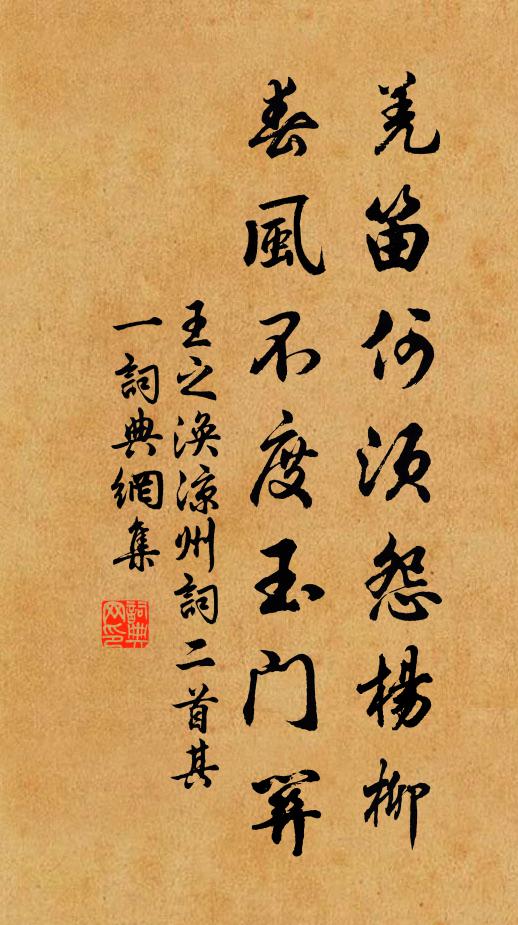 羌笛何須怨楊柳
春風不度玉门關
王之渙涼州詞二首其
一詞典網集
詞典网印